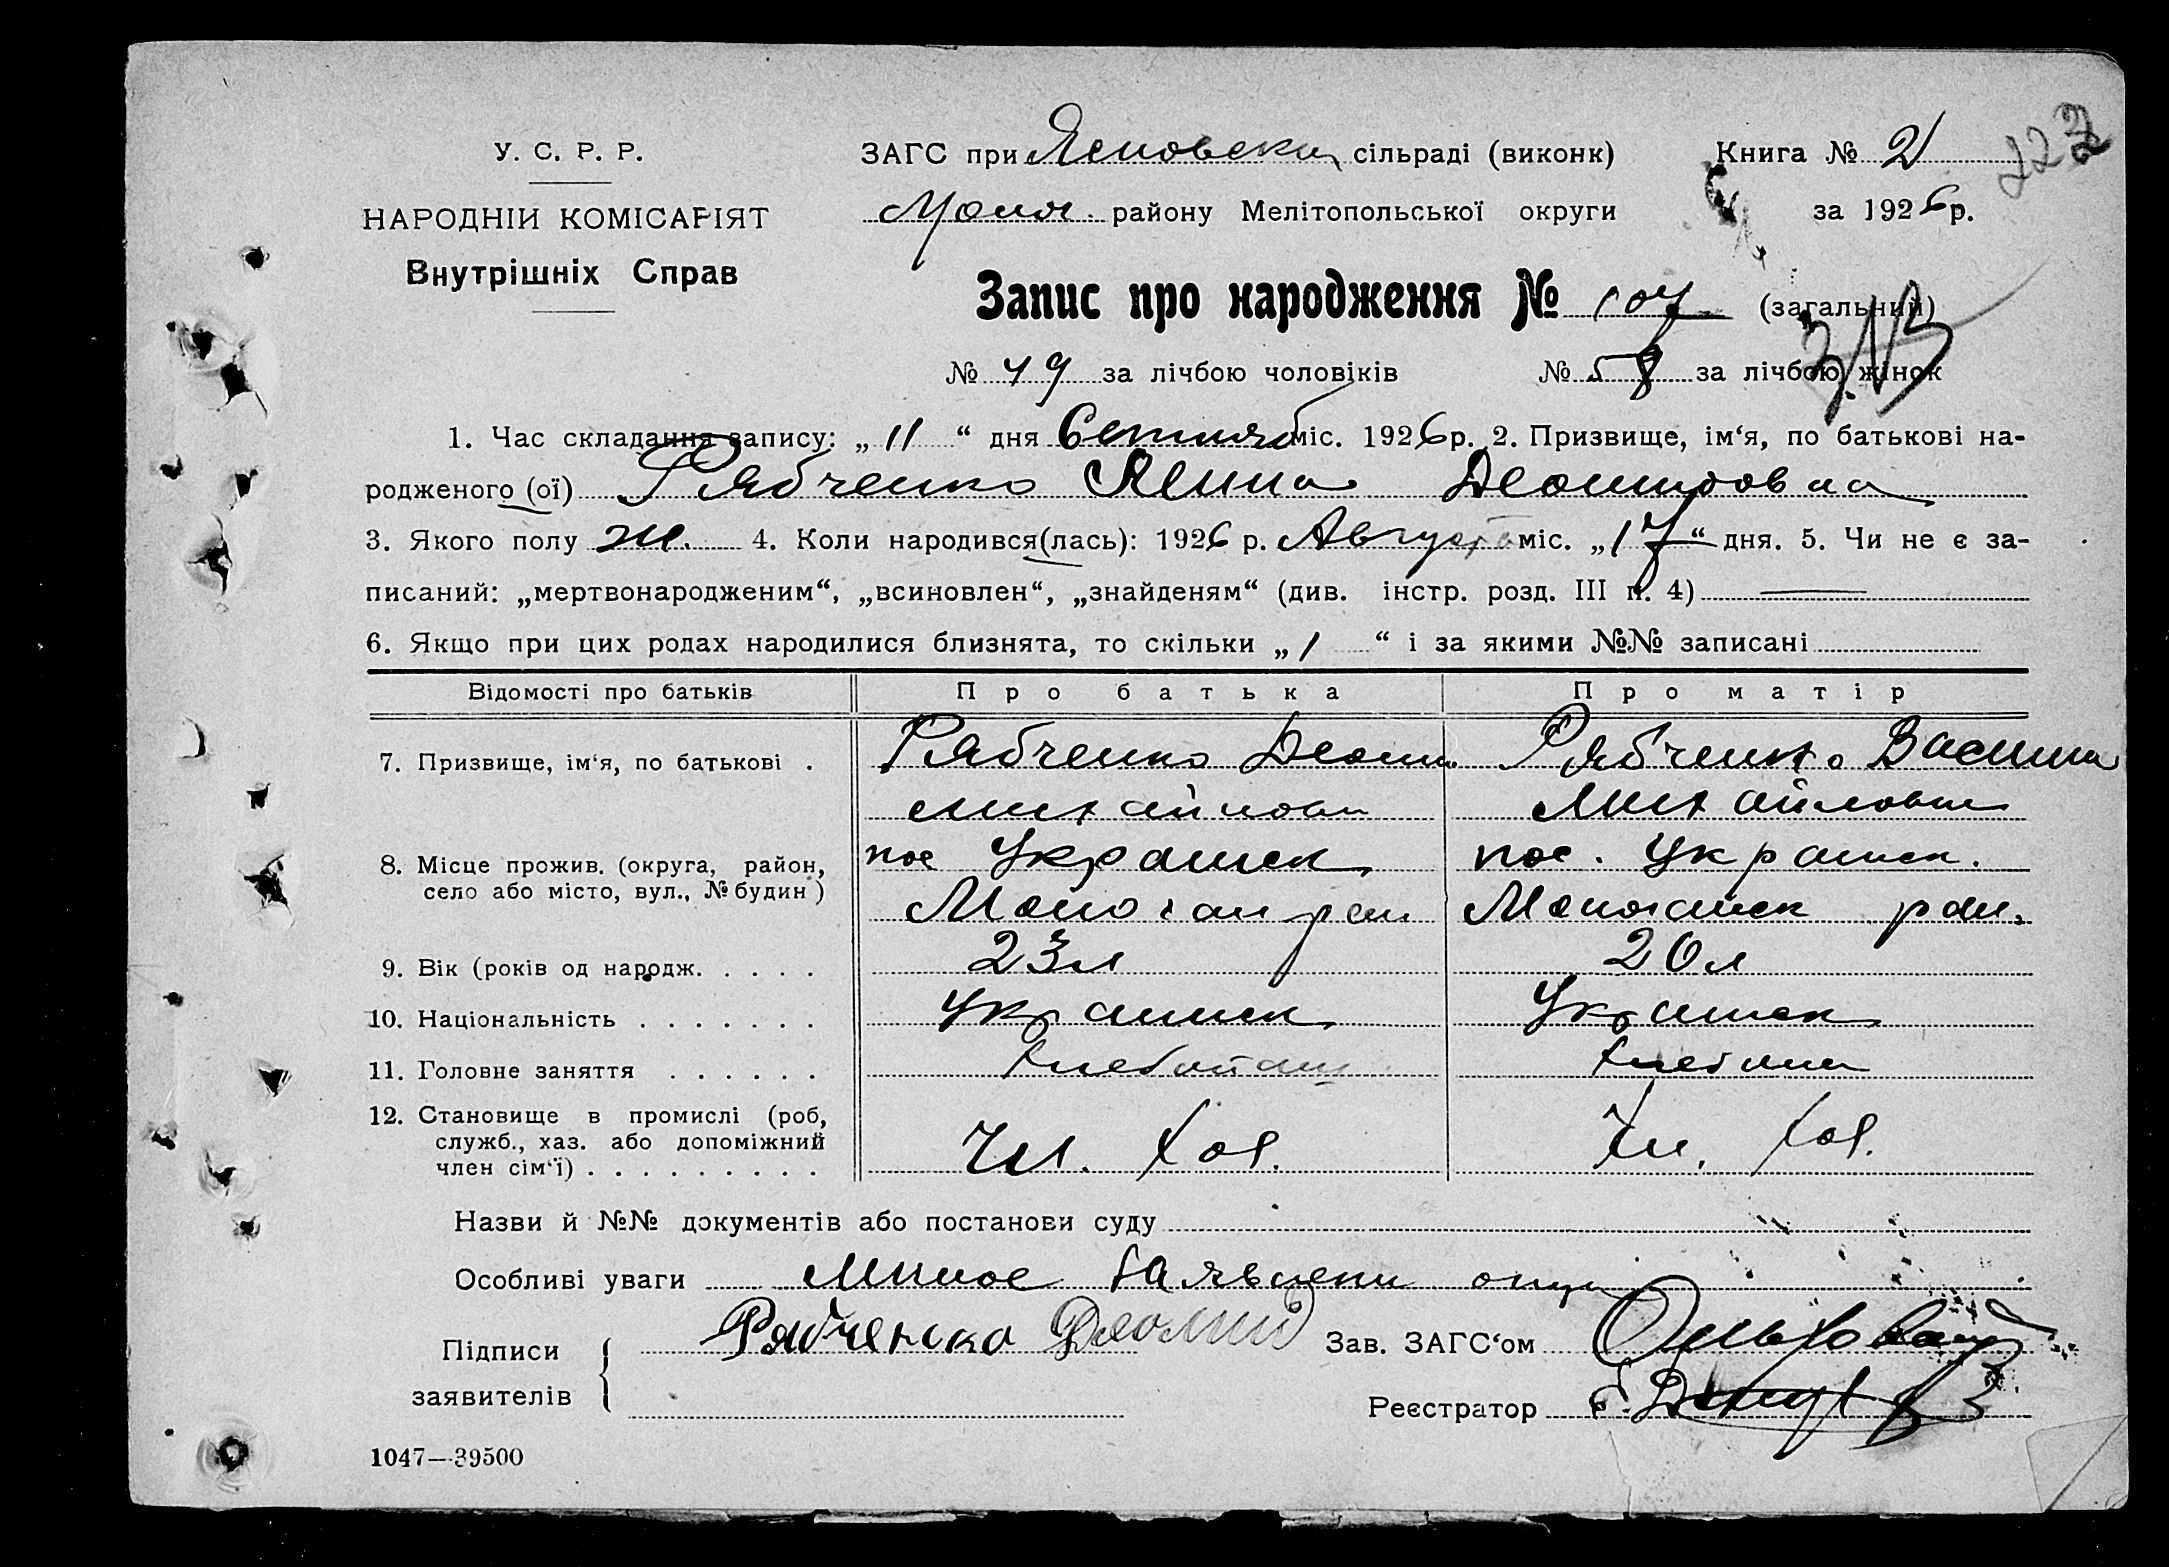 У. С. Р. Р.
НАРОДНІЙ КОМІСАРІЯТ
Внутрішніх Справ
ЗАГС при сільраді (виконк)
району Мелітопольської округи
Книга № 2
за 1926 р.
222
Запис про народження № 107 (загальний)
№ 49 за лічбою чоловіків № 58 за лічбою жінок
1. Час складання запису: „ 11 “ дня Сентяб міс. 1926 р. 2. Призвище, ім‘я, по батькові на-
родженого (ої) Рябченко Деомидовна
3. Якого полу ж. 4. Коли народився(лась): 1926 р. Август міс. „ 17 “ дня. 5. Чи не є за-
писаний: „мертвонародженим“, „всиновлен“, „знайденям“ (див. інстр. розд. III п. 4) —
6. Якщо при цих родах народилися близнята, то скільки „ 1 “ і за якими №№ записані
Відомості про батьків Про батька Про матір
7. Призвище, ім‘я, по батькові . Рябченко Деоми Рябченко
Михайлови Михайловн
8. Місце прожив. (округа, район, пос Украинск пос. Украинск.
село або місто, вул., № будин )
9. Вік (років од народж. . . . . 23 л 20 л
10. Національність . . . . . . . Украинск Украинск
11. Головне заняття . . . . . .
12. Становище в промислі (роб, Чл. Хоз. Чл. Хоз.
служб., хаз. або допоміжний
член сім‘ї) . . . . . . . . .
Назви й №№ документів або постанови суду
Особливі уваги Личное заявлени отца
Підписи Рябченко Деомид Зав. ЗАГС‘ом
заявителів Реєстратор
1047—39500